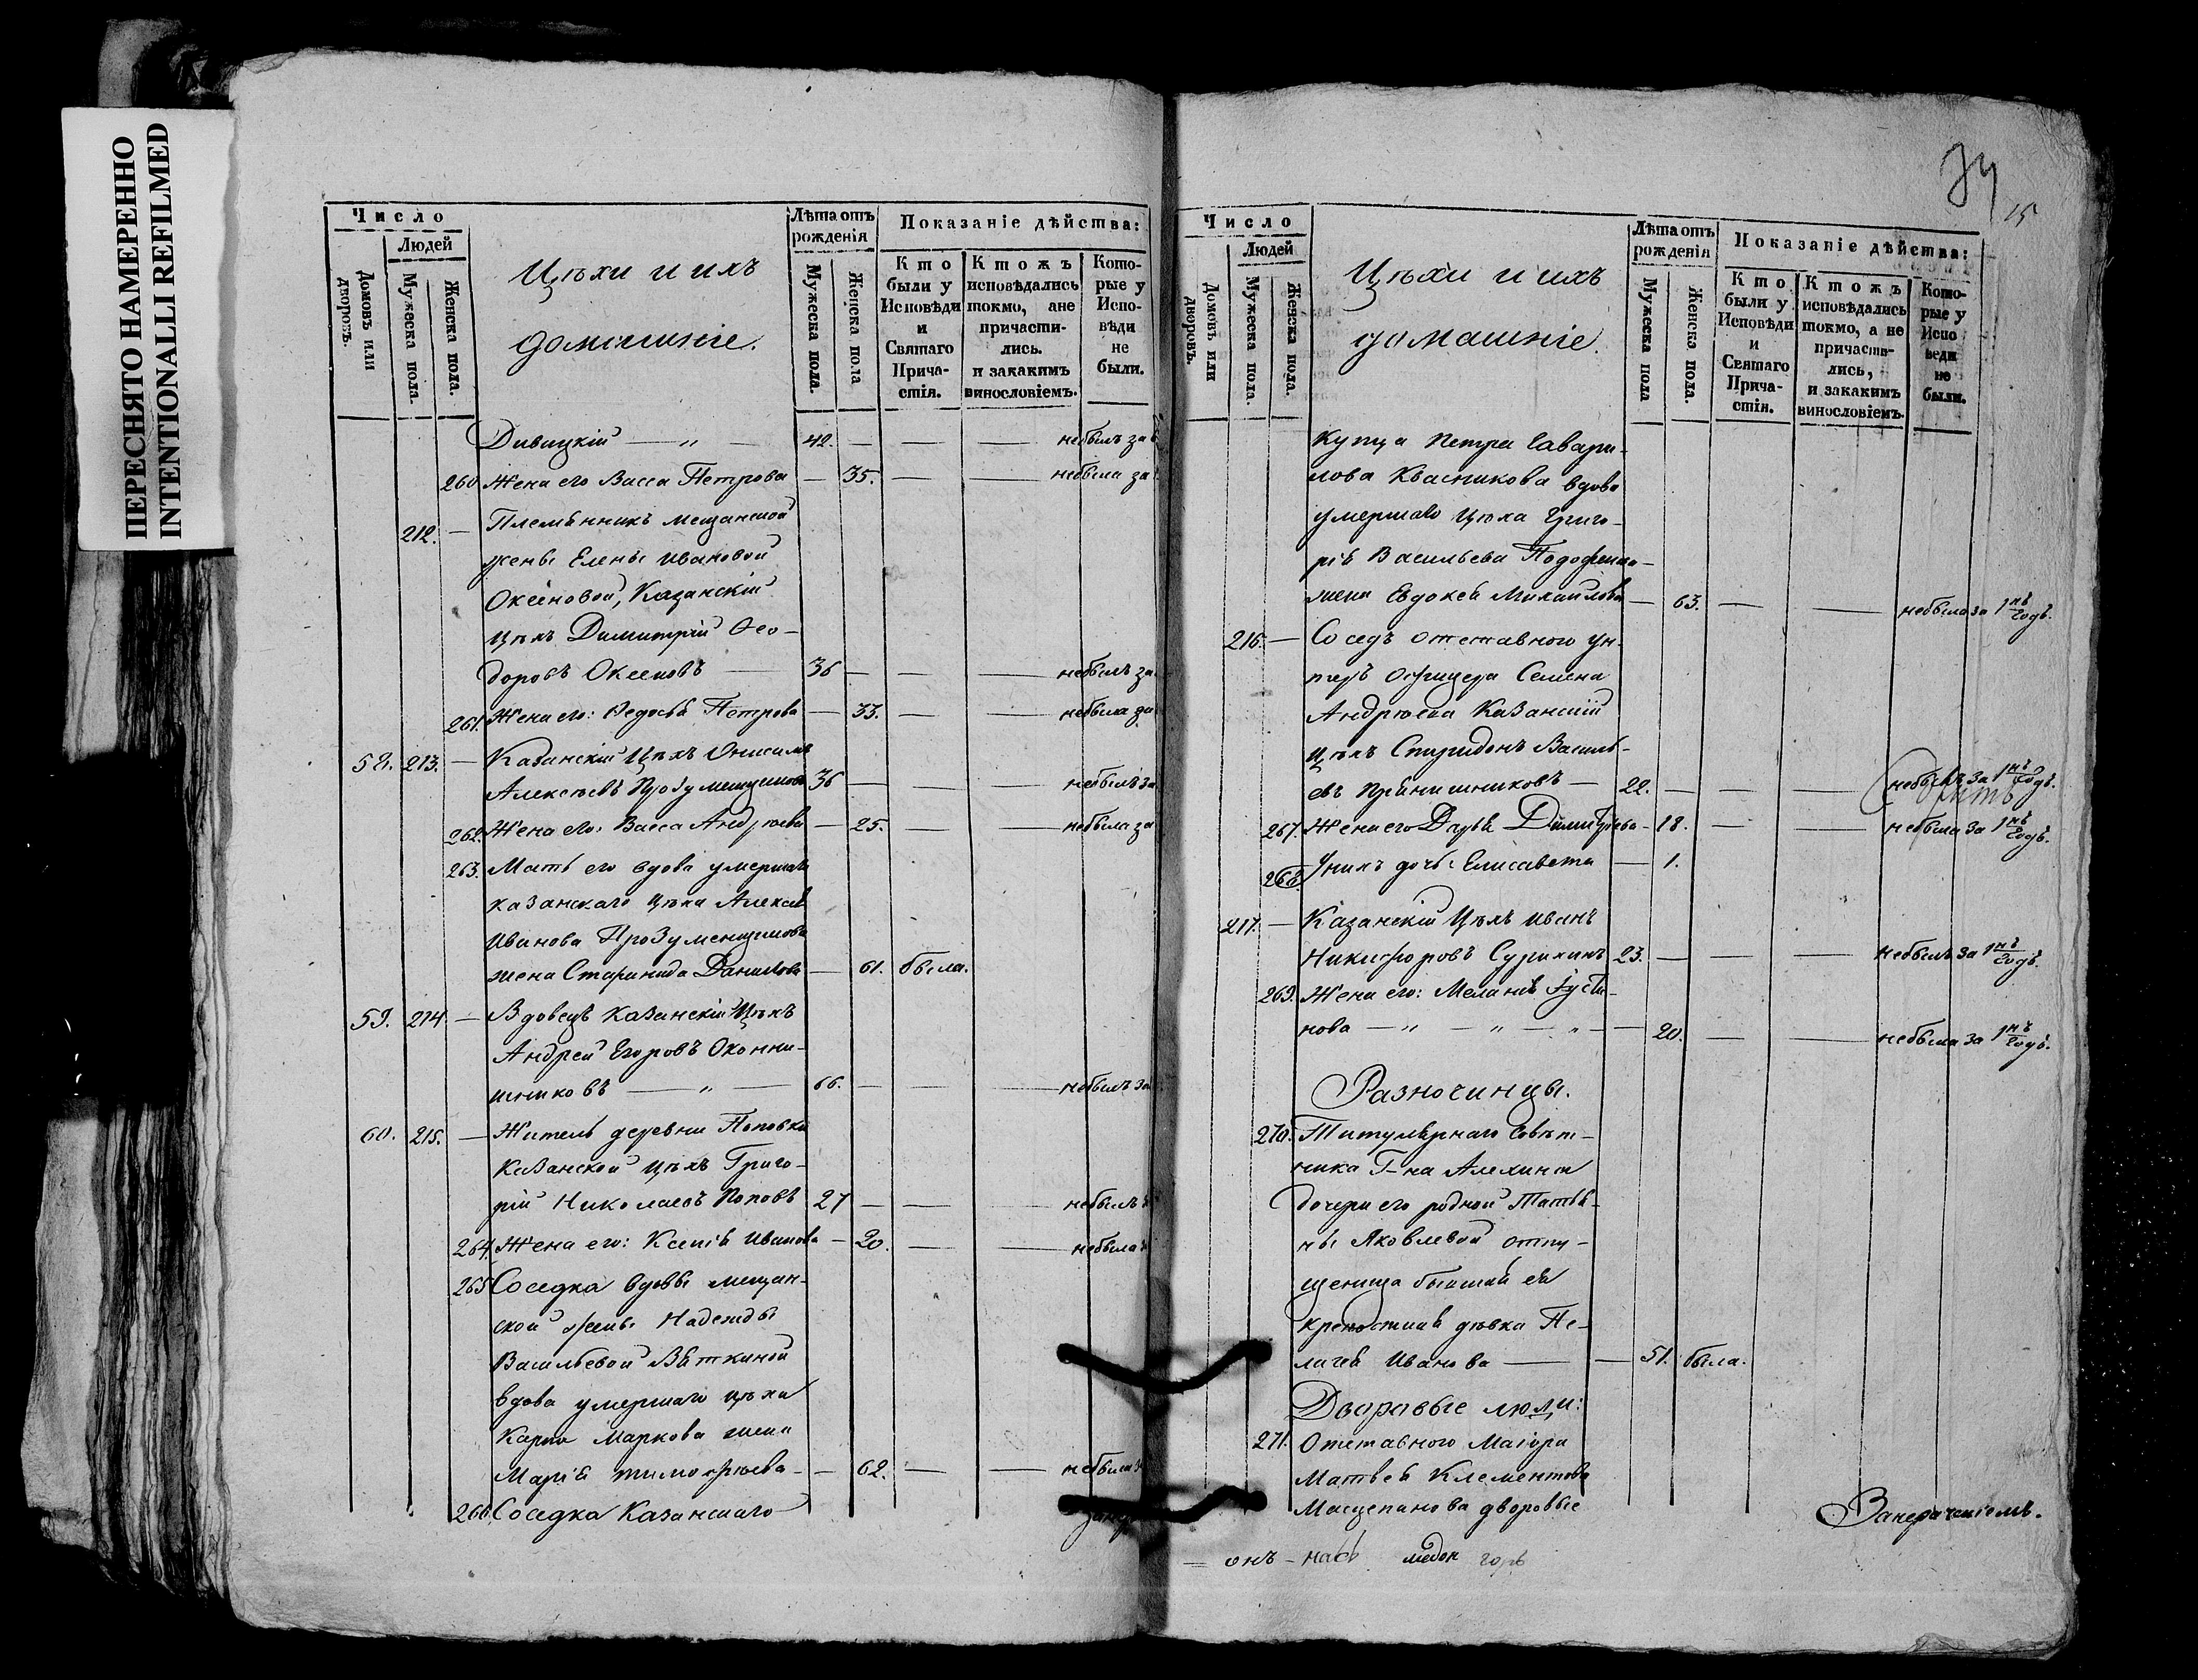 ПЕРЕСНЯТО НАМЕРЕННО
INTENTIONALLI REFILMED
Число
Людей
Домовъ или дворовъ.
Мужеска пола.
Женска пола.
Цѣхи и ихъ
домашніе.
Лѣта отъ рожденія
Мужеска пола.
Женска пола
Показаніе дѣйства:
Кто были у Исповѣди и Святаго Прича-стія.
Ктожъ исповѣдались токмо, ане причасти-лись. и закакимъ винословіемъ.
Кото-рые у Испо-вѣди не были.
Дивицкій — „ — 42. — — — небылъ за
260 Жена его Васса Петрова — 35. — — небыла за
212. — Племянникъ мещанской
жены Елены Ивановой
Оксеновой, Казанскій
цѣхъ Димитрій Ѳео-
доровъ Оксеновъ — 36 — — — небылъ за
261. Жена его: Ѳедосья Петрова — 33. — — небыла за
58. 213. — Казанскій Цѣхъ Онисимъ
Алексѣевъ 36 — — небылъ за
262. Жена его: Васса Андреева — 25. — — небыла за
263. Мать его вдова умершаго
казанскаго цѣха Алексея
Иванова
жена Данилова — 61. была.
59. 214 — Вдовецъ Казанскій Цѣхъ
Андрей Егоровъ Оконни-
шниковъ — „ — 66. — — — небылъ за
60. 215. — Житель деревни Поповки
Казанской цѣхъ Григо-
рій Николаевъ Поповъ 27 — — — небылъ
264. Жена его: Ксенія Иванова — 20. — — небыла
265 Соседка вдовы мещан-
ской жены Надежды
Васильевой Вяткиной
вдова умершаго цѣха
Карпа Маркова жена
Марія Тимофѣева — — 62. — — небыла
266. Соседка Казанскаго
34
15
Число
Людей
Домовъ или дворовъ.
Мужеска пола.
Женска пола.
Цѣхи и ихъ
домашніе.
Лѣта отъ рожденія
Мужеска пола
Женска пола.
Показаніе дѣйства:
Кто были у Исповѣди и Святаго Прича-стія.
Ктожъ исповѣдались токмо, а не причасти-лись, и закакимъ винословіемъ.
Кото-рые у Испо ведиі не были.
Купца Петра Гаври-
лова Квасникова вдова
умершаго Цѣха Григо-
рія Васильева
жена Евдокея Михаилова — 63. — — небыла за 1нъ Годъ.
216. — Соседъ отставного ун-
теръ офицера Семена
Андреева Казанскій
Цѣхъ Спиридонъ Василь-
евъ Прянишниковъ — 22. — — — небылъ за 1нъ Годъ.
267. Жена его Дарья Димитріева — 18. — — небыла за 1нъ Годъ.
268. Уникъ дочь: Елисавета — 1.
217. — Казанскій Цѣхъ Иванъ
Никифоровъ Сурикинъ 23. — — — небылъ за 1нъ Годъ.
269. Жена его: Меланія Густи-
нова — „ — „ — „ — — 20. — — небыла за 1нъ Годъ.
Разночинцы.
270. Титулярнаго Совѣт-
ника Г-на Алехина
дочери его родной Татья-
ны Яковлевой отпу-
щеница бывшая ея
крепостная девка Пе-
лагея Иванова — — 51. была.
Дворовые люди:
271. Отставного Маіора
Матвея Клементова
дворовые